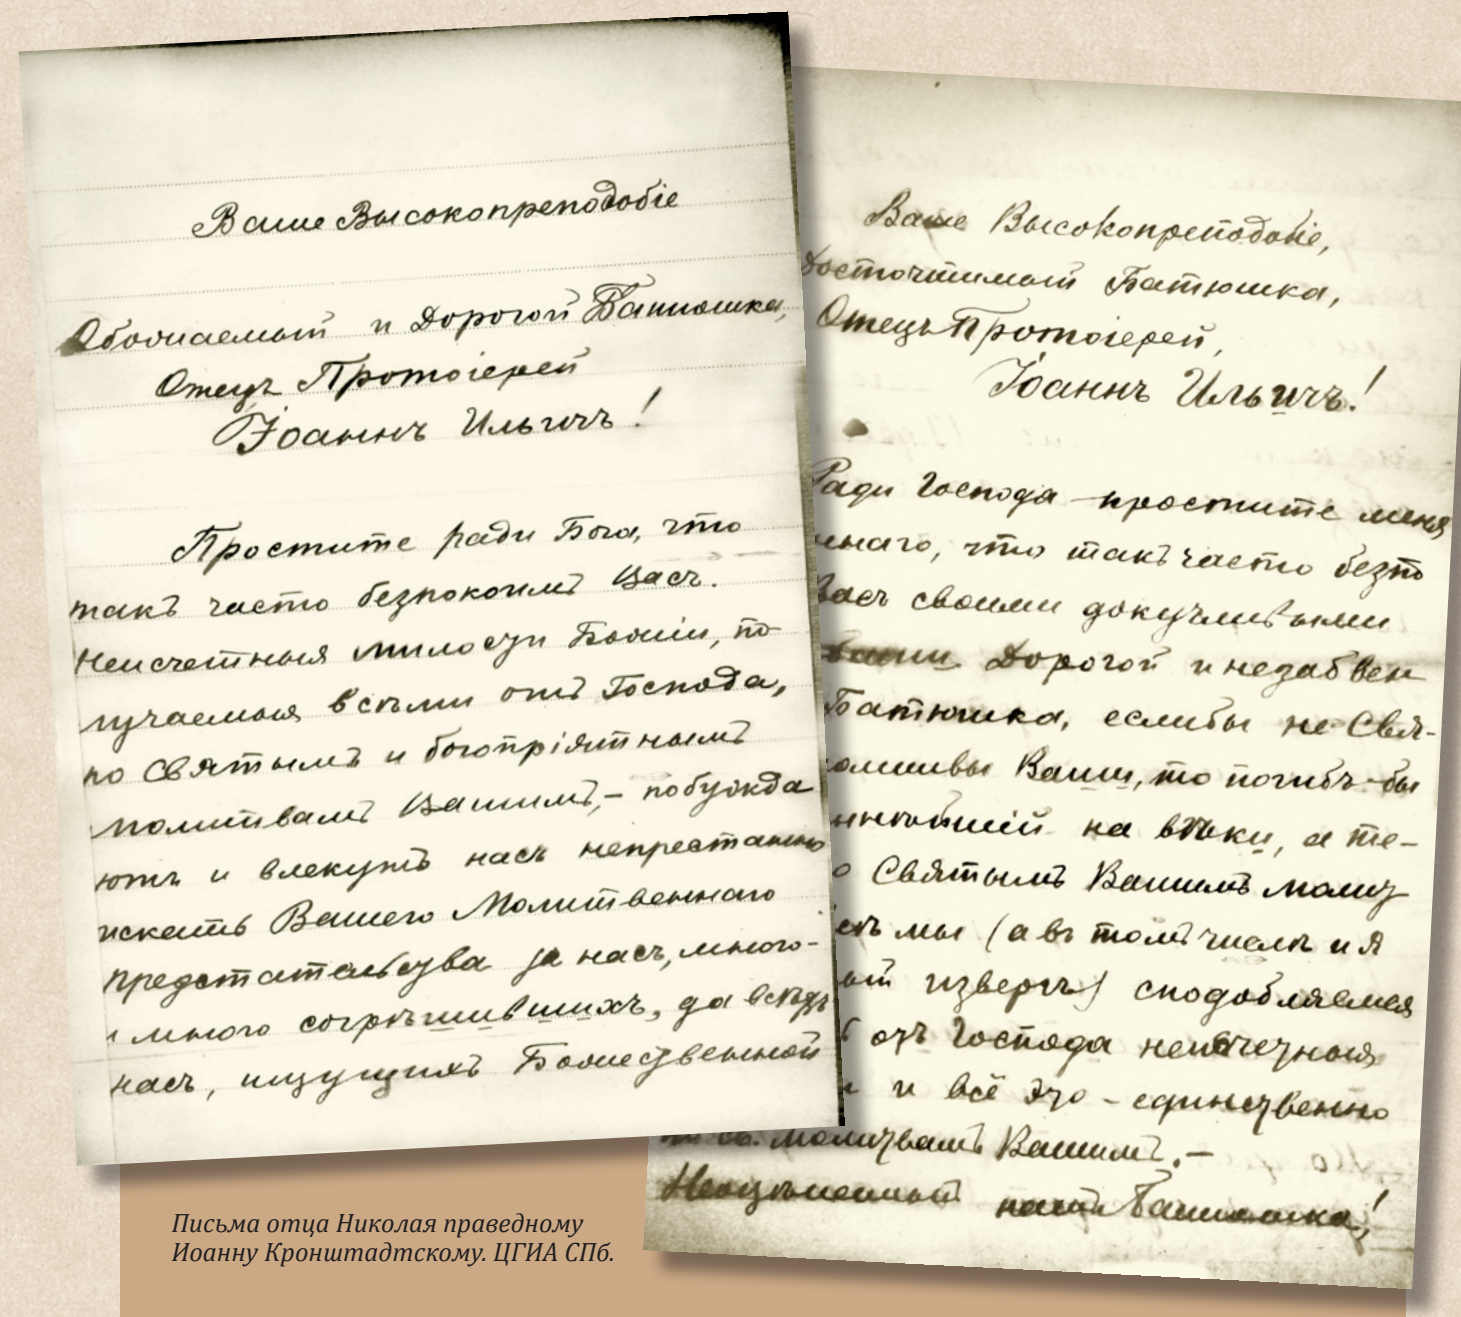 Ваше Высокопреподобіе
Обожаемый и Дорогой Батюшка,
Отецъ Протоіерей
Іоаннъ Ильичъ!
Простите ради Бога, что
такъ часто безпокоимъ Васъ.
Неисчетныя милости Божіи, по-
лучаемыя всѣми отъ Господа,
по Святымъ и богопріятнымъ
молитвамъ Вашимъ, – побужда
ютъ и влекутъ насъ непрестанно
искать Вашего Молитвеннаго
предстательства за насъ, много-
и много согрѣшившихъ, да всѣхъ
насъ, ищущихъ Божественной
Ваше Высокопреподобіе,
Досточтимый Батюшка,
Отецъ Протоіерей,
Іоаннъ Ильичъ!
Ради Господа – простите меня
ннаго, что такъ часто безпо
Васъ своими докучливыми
Дорогой и незабвен
Батюшка, еслибы не Свя-
олитвы Ваши, то погибъ-бы
ннѣйшій на вѣки, а те-
о Святымъ Вашимъ молит
мы (а въ томъ числѣ и я
ый извергъ) сподобляемся
отъ Господа неисчетныя
и и всё это – единственно
по св. молитвамъ Вашимъ. –
Неоцѣненный нашъ Батюшка!
Письма отца Николая праведному
Иоанну Кронштадтскому. ЦГИА СПб.